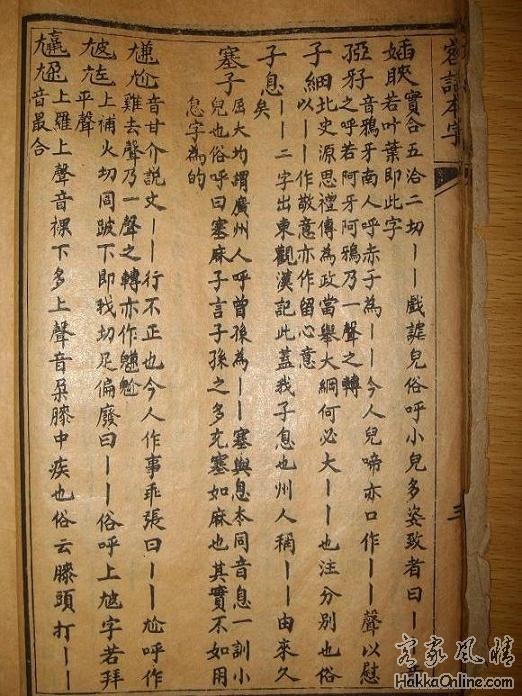 客話本字
三
實合五洽二切丨丨戲謔兒俗呼小兒多姿致者曰丨丨
若叶葉即此字
音鴉牙南人呼赤子為丨丨今人兒啼亦口作丨丨聲以慰
之呼若阿牙阿鴉乃一聲之轉
子細北史源思禮傳為政當舉大綱何必大丨丨也注分別也俗
以丨丨作敬意亦作留心意
子息丨丨二字出東觀漢記此蓋我子息也州人稱丨丨由來久
矣
塞子屈大均謂廣州人呼曾孫為丨丨塞與息本同音息一訓小
兒也俗呼曰塞麻子言子孫之多充塞如麻也其實不如用
息字為的
尲尬音甘介說文丨丨行不正也今人作事乖張曰丨丨尬呼作
雞去聲乃一聲之轉亦作
上補火切同跛下即我切足偏廢曰丨丨俗呼上字若拜
平聲
上羅上聲音裸下多上聲音朵膝中疾也俗云膝頭打丨丨
音最合
客家風情
HakkaOnline.com